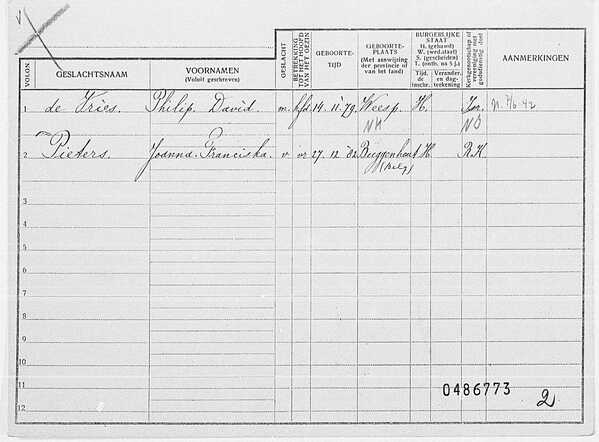 V
VOLGN.
GESLACHTSNAAM
VOORNAMEN
(Voluit geschreven)
GESLACHT
BETREKKING
TOT HET HOOFD
VAN HET GEZIN
GEBOORTE-
TIJD
GEBOORTE-
PLAATS
(Met aanwijzing
der provincie of
van het land)
BURGERLIJKE
STAAT
H. (gehuwd)
W. (wed.staat)
S. (gescheiden)
T. (ontb. na 5 j.)
Tijd.
de
inschr.
Verander.
en dag-
teekening
Kerkgenootschap of
vereeniging met
godsdienstig doel
AANMERKINGEN
1 de Vries. Philip David. m. hfd. 19. 11. '79. Weesp. H. Isr.
NH
2 Pieters. Joanna Franciska. v vr 27. 12 '82. Buggenhout H. R.K
(Belg)
3
4
5
6
7
8
9
10
11
12
0486773
2